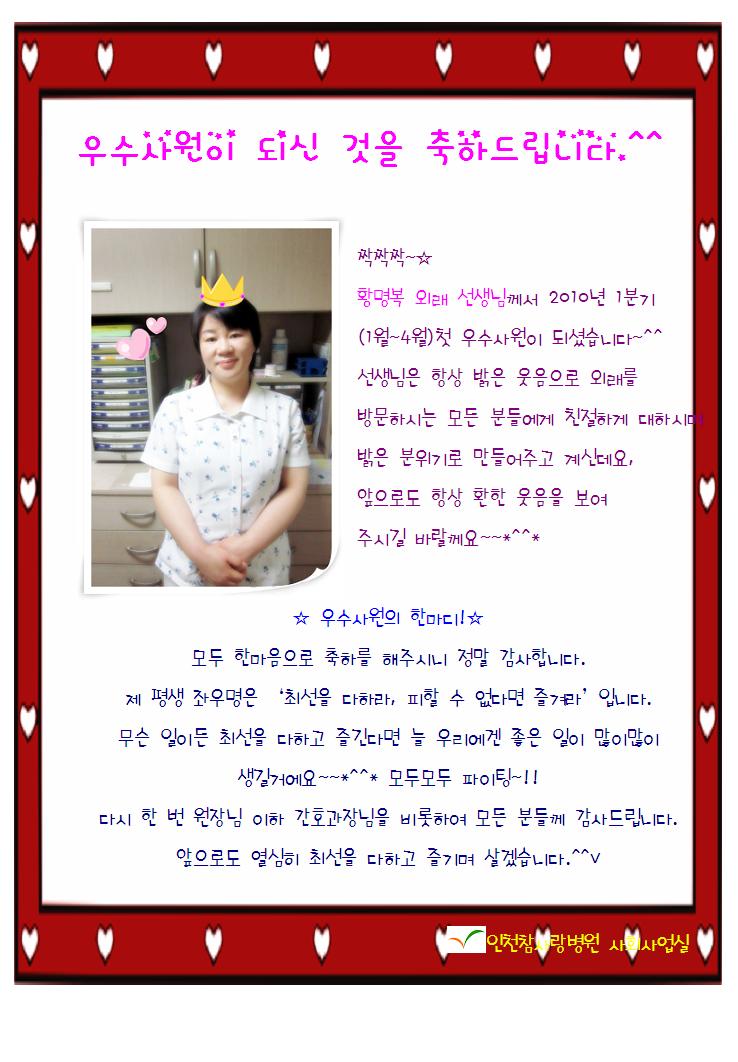 우수사원이 되신 것을 축하드립니다.^^
짝짝짝~☆
황명복 외래 선생님께서 2010년 1분기
(1월~4월)첫 우수사원이 되셨습니다~^^
선생님은 항상 밝은 웃음으로 외래를
방문하시는 모든 분들에게 친절하게 대하시며
밝은 분위기로 만들어주고 계신데요,
앞으로도 항상 환한 웃음을 보여
주시길 바랄께요~~*^^*
☆ 우수사원의 한마디!☆
모두 한마음으로 축하를 해주시니 정말 감사합니다.
제 평생 좌우명은 ‘최선을 다하라, 피할 수 없다면 즐겨라’ 입니다.
무슨 일이든 최선을 다하고 즐긴다면 늘 우리에겐 좋은 일이 많이많이
생길거에요~~*^^* 모두모두 파이팅~!!
다시 한 번 원장님 이하 간호과장님을 비롯하여 모든 분들께 감사드립니다.
앞으로도 열심히 최선을 다하고 즐기며 살겠습니다.^^v
인천참사랑병원 사회사업실